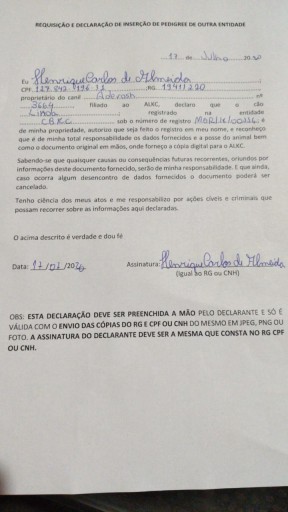 REQUISIÇÃO E DECLARAÇÃO DE INSERÇÃO DE PEDIGREE DE OUTRA ENTIDADE
17 de Julho
Eu Henrique Carlos de Almeida,
CPF, RG,
proprietário do canil, nº
3664, filiado ao ALKC, declaro que o cão
Linda, registrado na entidade
CBKC, sob o número de registro, é
de minha propriedade, autorizo que seja feito o registro em meu nome, e reconheço
que é de minha total responsabilidade os dados fornecidos e a posse do animal bem
como o documento original em mãos, onde forneço a cópia digital para o ALKC.
Sabendo-se que quaisquer causas ou consequências futuras recorrentes, oriundos por
informações deste documento fornecido, serão de minha responsabilidade. E que ainda,
caso ocorra algum desencontro de dados fornecidos o documento poderá ser
cancelado.
Tenho ciência dos meus atos e me responsabilizo por ações cíveis e criminais que
possam recorrer sobre as informações aqui declaradas.
O acima descrito é verdade e dou fé
Data: Assinatura: Henrique Carlos de Almeida
(Igual ao RG ou CNH)
OBS: ESTA DECLARAÇÃO DEVE SER PREENCHIDA A MÃO PELO DECLARANTE E SÓ É
VÁLIDA COM O ENVIO DAS CÓPIAS DO RG E CPF OU CNH DO MESMO EM JPEG, PNG OU
FOTO. A ASSINATURA DO DECLARANTE DEVE SER A MESMA QUE CONSTA NO RG CPF
OU CNH.